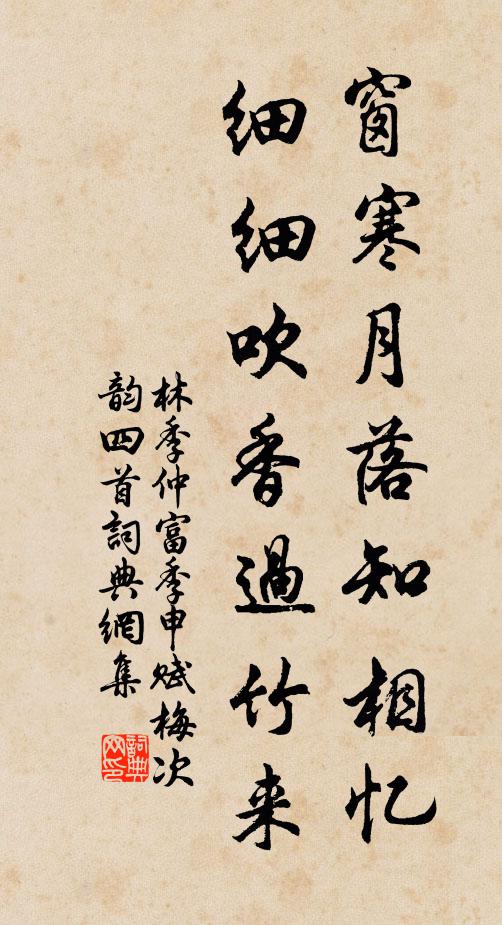 窗寒月落知相忆
细细吹香過竹来
林季仲富季申赋梅次
韵四首詞典網集
詞典
网印